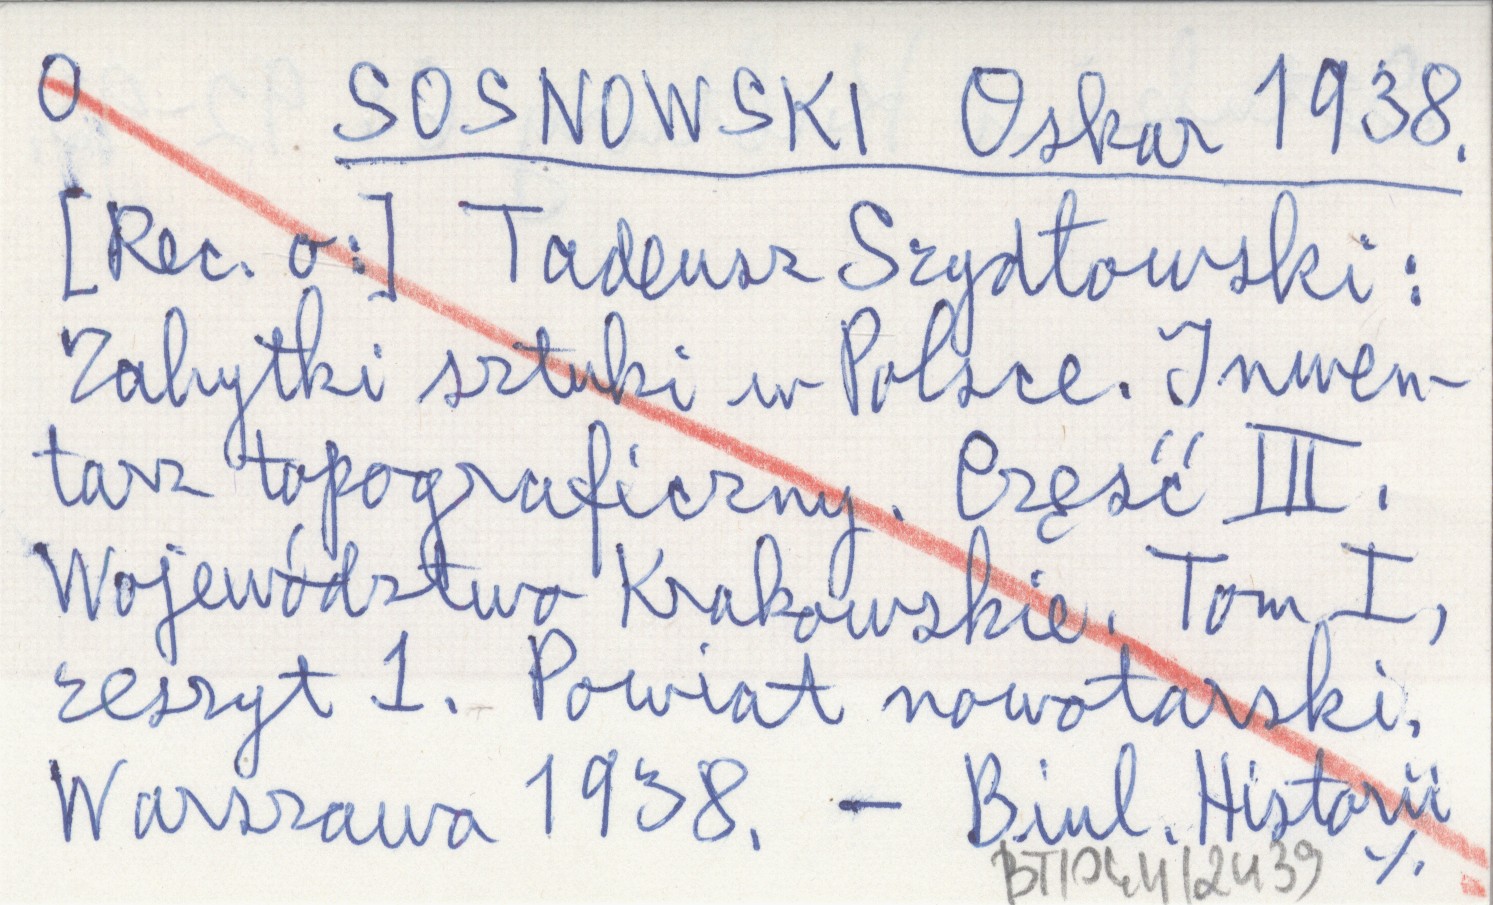 O SOSNOWSKI Oskar 1938.
[Rec. o:] Tadeusz Szydłowski:
Zabytki sztuki w Polsce. Inwen-
tarz topograficzny. Część III.
Województwo Krakowskie. Tom I,
zeszyt 1. Powiat nowotarski.
Warszawa 1938. — Biul. Historii
./.